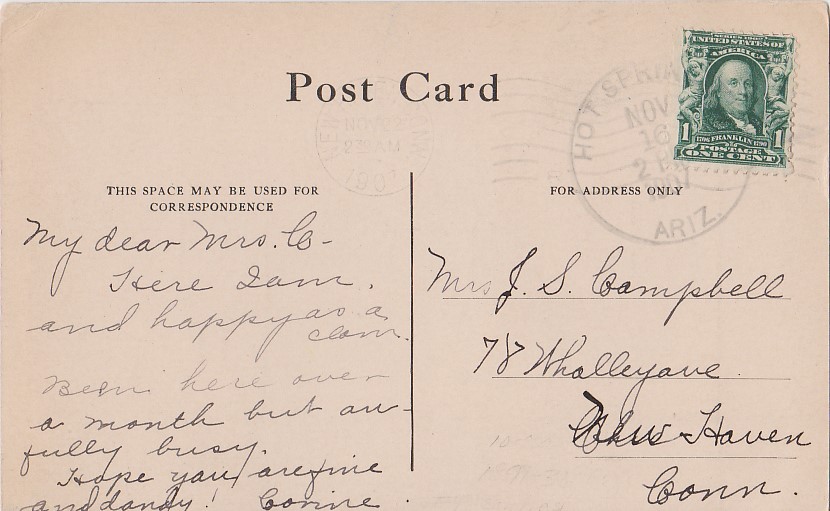 Post Card
SERIES 1902
UNITED STATES OF
AMERICA
1
1706 FRANKLIN 1790
1
POSTAGE
ONE CENT
HOT SPRIN
NOV
16
2 P
1907
ARIZ.
NOV 22
1907
THIS SPACE MAY BE USED FOR
CORRESPONDENCE
My dear Mrs. C-
Here I am.
and happy as a
clam.
Been here over
a month but aw-
fully busy.
Hope you are fine
and dandy! Corine.
FOR ADDRESS ONLY
Mrs J. S. Campbell
78 Whalley ave
New Haven
Conn.